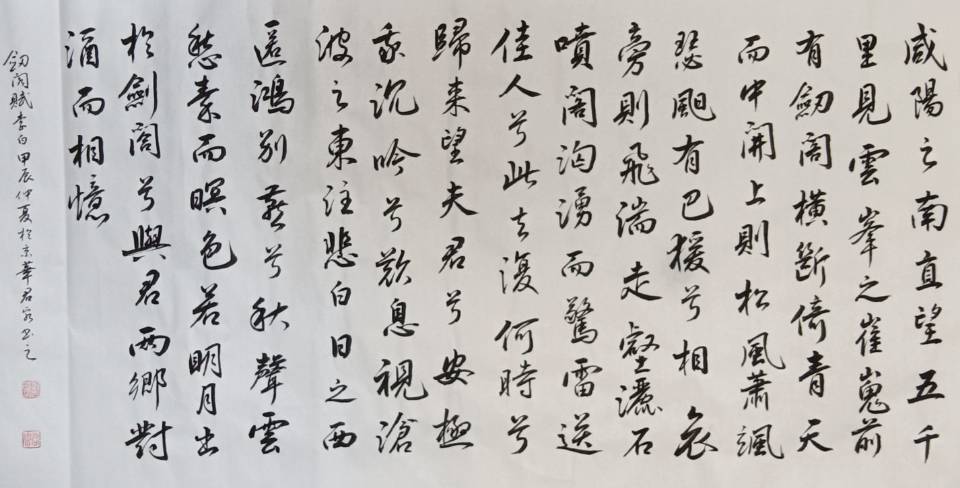 咸陽之南直望五千
里見雲峯之崔嵬前
有劒閣橫斷倚青天
而中開上則松風蕭颯
瑟䬍有巴猨兮相哀
旁則飛湍走壑灑石
噴閣洶湧而驚雷送
佳人兮此去復何時兮
歸來望夫君兮安極
我沉吟兮歎息視滄
波之東注悲白日之西
匿鴻別燕兮秋聲雲
愁秦而暝色若明月出
於劍閣兮與君兩鄉對
酒而相憶
劒閣賦李白甲辰仲夏於京華君書之